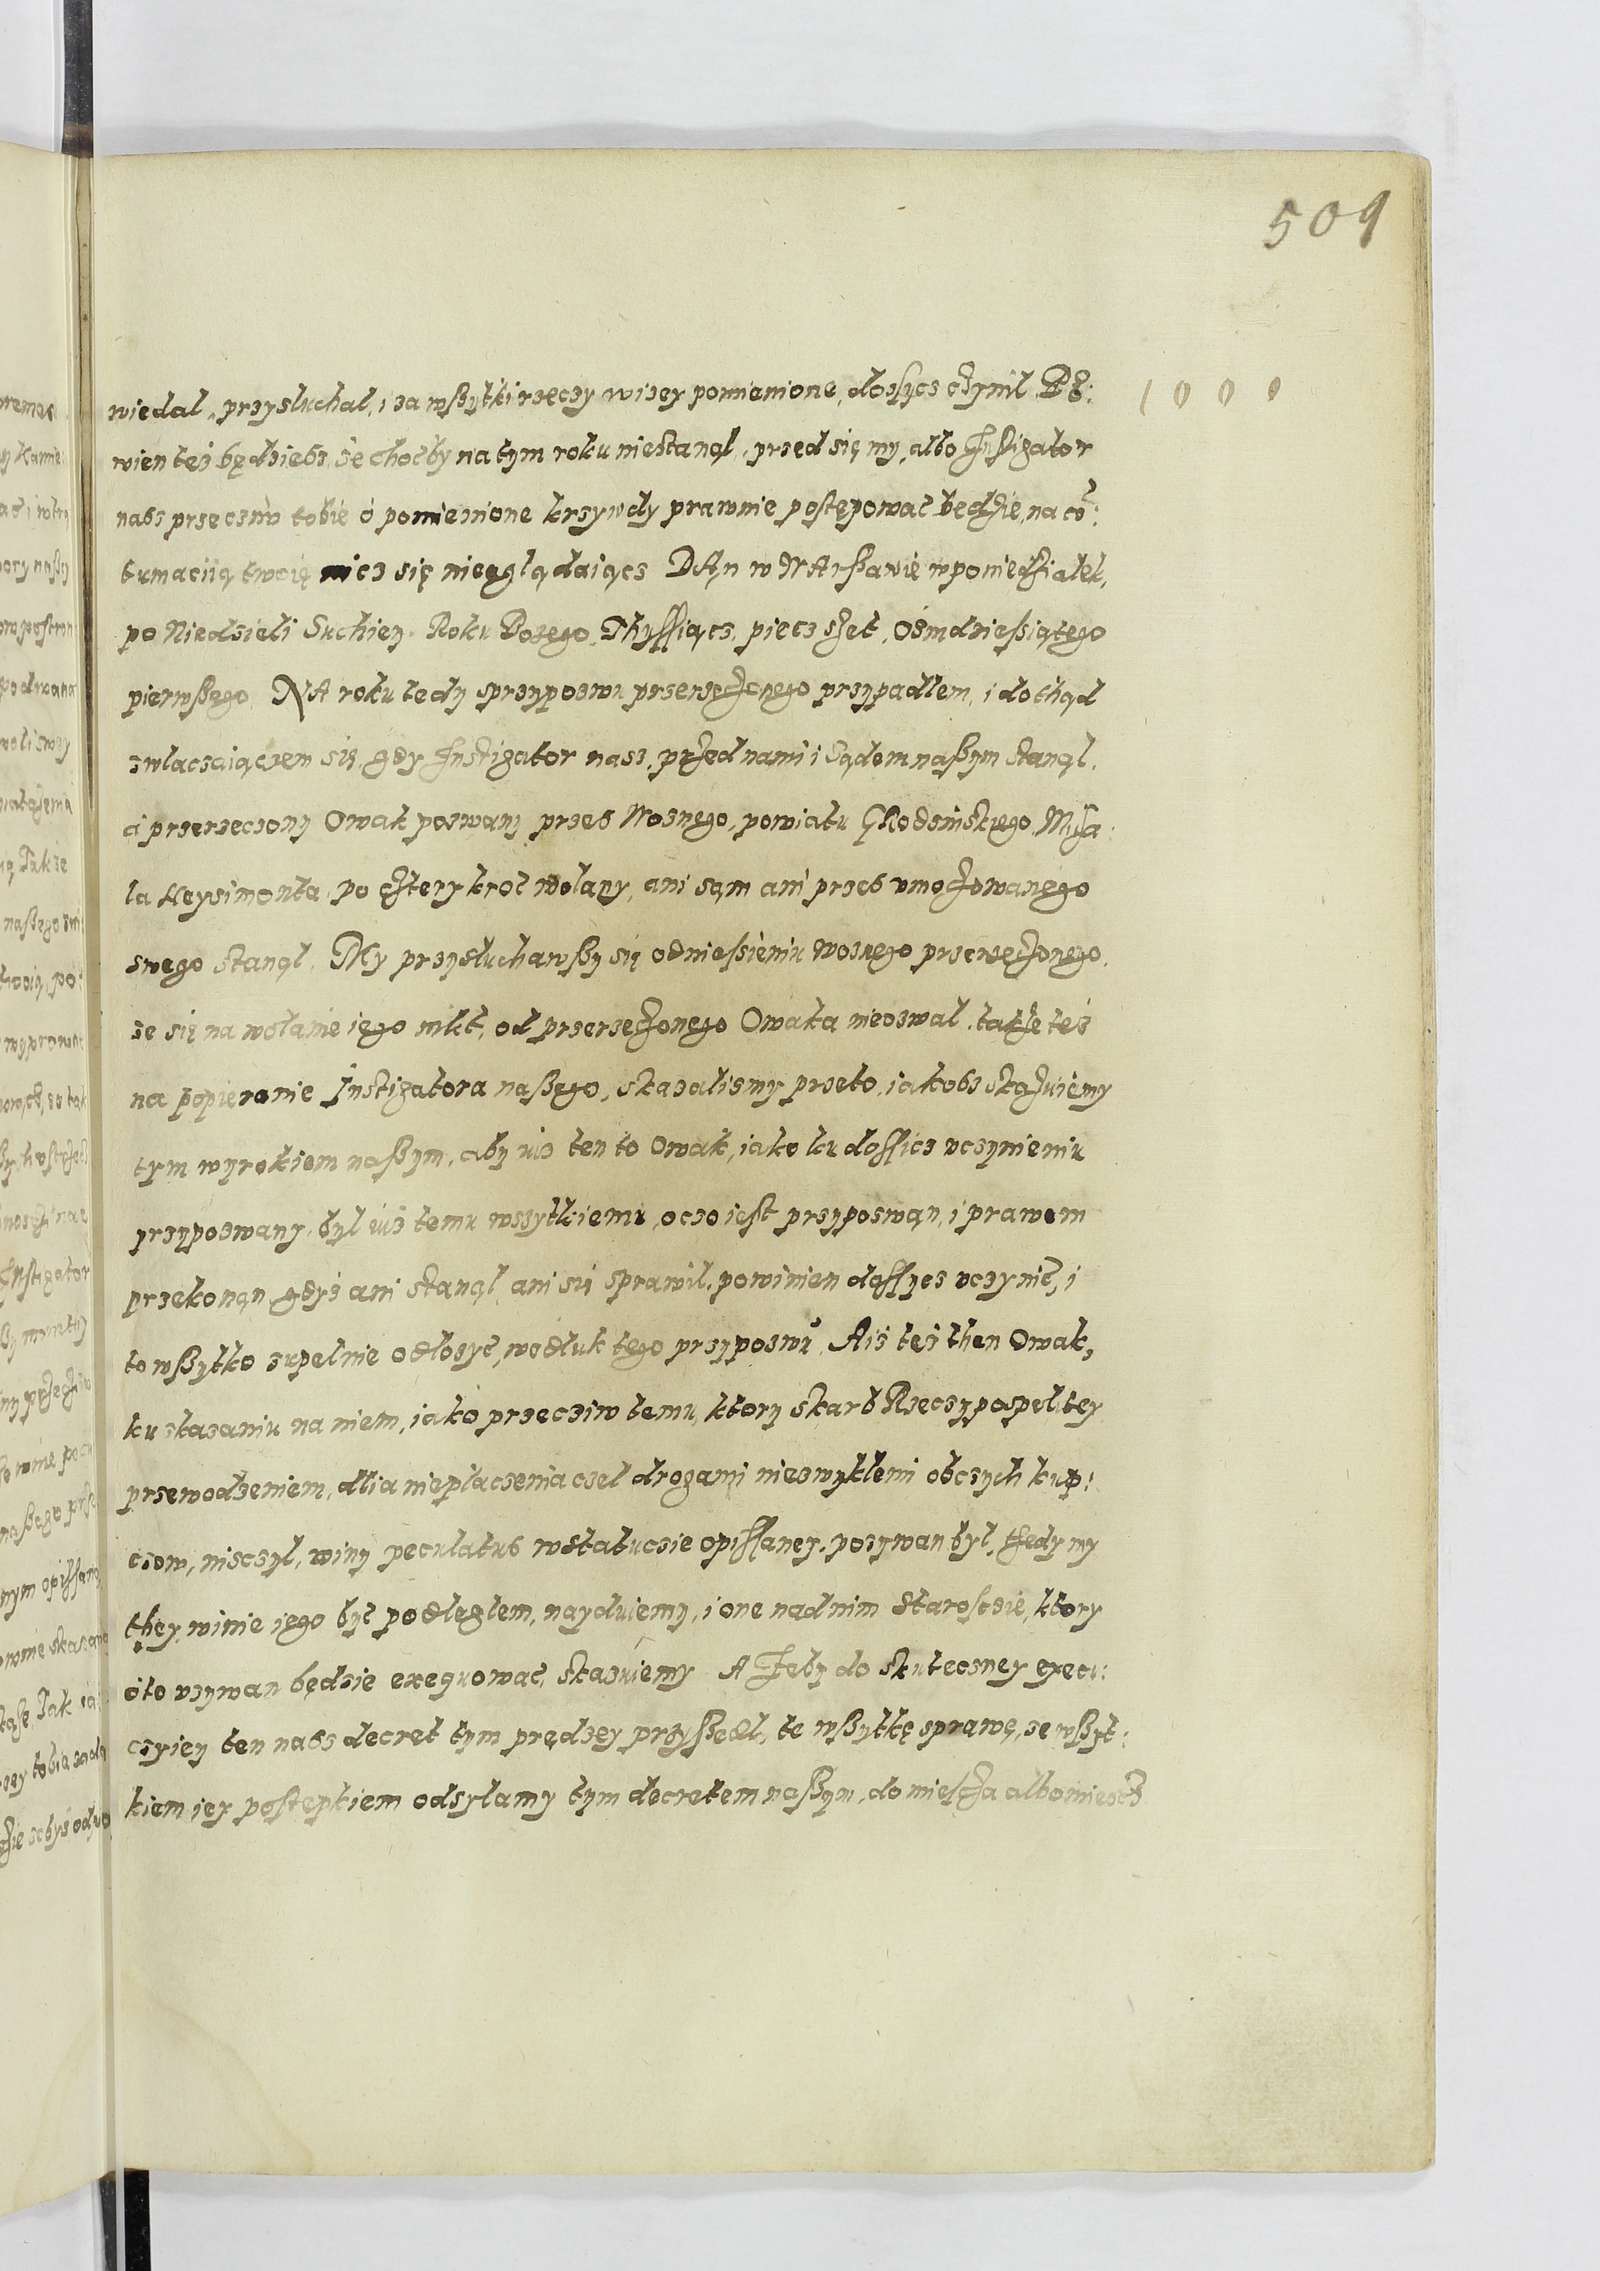 509
wiedal, przysluchal, i za wßytki rzeczy wizey pomienione, dosſycz czynil. Pe: 1000
wien tez będziebz, że choćby na tym roku niestanąl, przed się my, albo Instigator
nabz przeczíw tobie ó pomienione krzywdy prawnie postępowac bedzie, na co:
tumaciią twoię nicz się nieoglądaiącz DAn w WArßawie w poniedzialek,
po Niedzieli Suchiey. Roku Bozego, Thyſſiącz, piecz szet, ośmdzießiątego
pierwßego. NA roku tedy z przypozwu przerzeczonego przypadlem, i dothąd
zwlaczaiączem się, gdy Instigator nasz, przed nami i Sądem naßym stanąl.
a przerzeczony Owak pozwany przeb Woznego, powiatu GRodzinskiego, Micha:
la Keysimonta, po cztery kroc wolany, ani sąm ani przeb vmoczowanego
swego stanąl. My przysluchawßy się odnießieniu woznego przerzeczonego,
ze się na wolanie iego nikt, od przerzeczonego Owaka nieozwal, takze tez
na popieranie Instigatora naßego, skazalismy przeto, iakobz skazuiemy
tym wyrokiem naßym, aby iuz ten to Owak, iako ku dosſicz vczynieniu
przypozwany, byl iuz temu wszytkiemu, oczo iest przypozwąn, i prawem
przekonąn, gdyz ani stanąl, ani się sprawil, powinien doſſycz vczynic, i
to wßytko zupelnie odlozyc, wedluk tego przypozwu. Aiz tez then Owak,
ku skazaniu na niem, iako przecziw temu, ktory skarb Rzeczypospolitey
przewodzeniem, dlia nieplaczenia czel drogami niezwyklemi obczych kup:
czow, nisczyl, winy peculatub w statuczie opiſſaney, pozywan byl, tedy my
they winie iego byc podleglem, nayduiemy, i one nad nim Starosczie, ktory
oto vzywan będzie exequowac, skazuiemy. A zeby do skuteczney execu:
czyiey ten nabz decret tym prędzey przyßedl, te wßytkę sprawę, ze wßyt:
kiem iey postepkiem odsylamy tym decretem naßym, do miescza albo mieocz